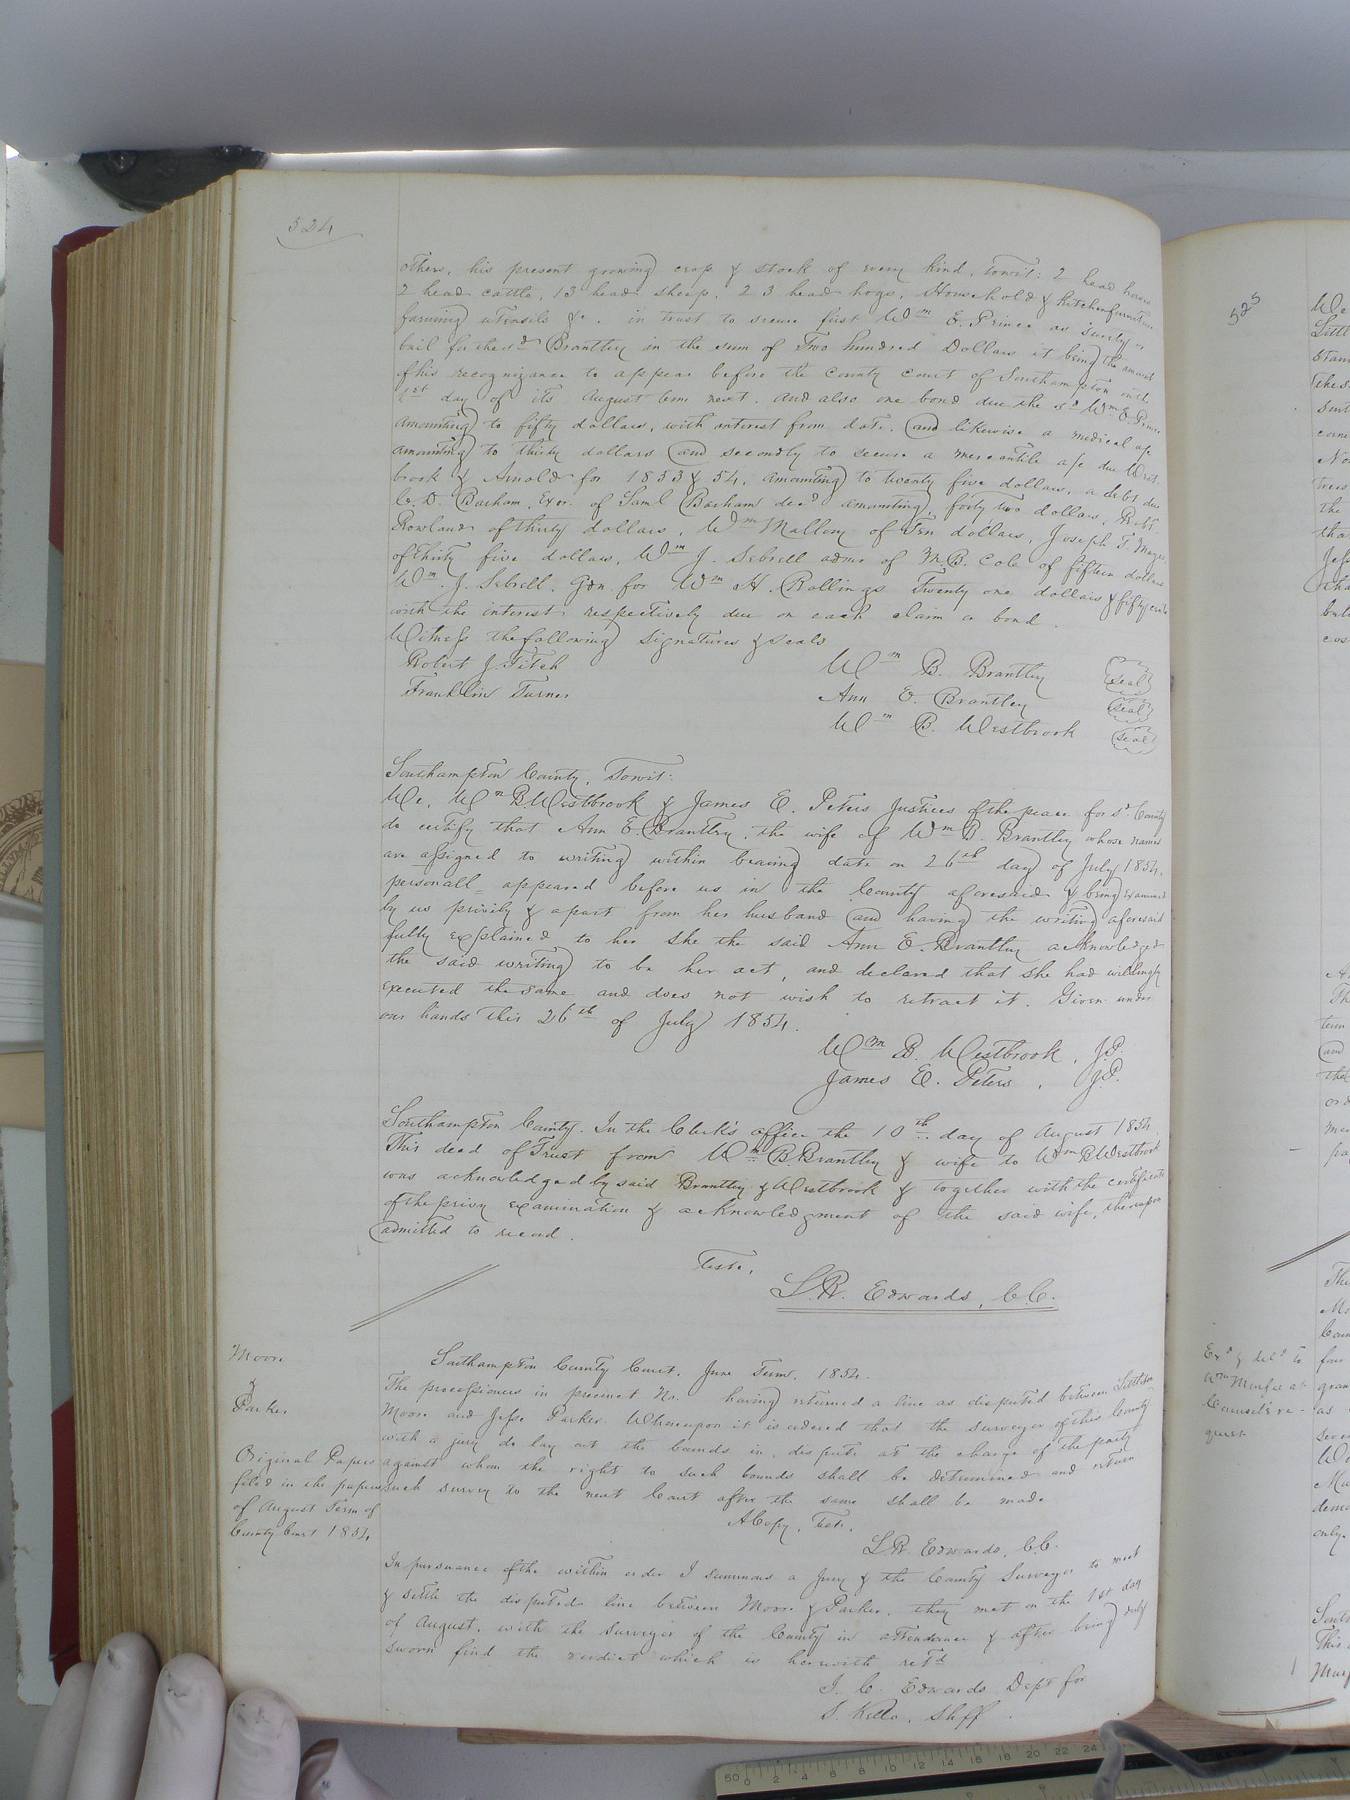 524
others, his present growing crop & stock of every kind, towit: 2 head horses
2 head cattle, 13 head sheep, 23 head hogs, Household & kitchen furniture
farming utensils &c. in trust to secure first Wm E. Prince as surety or
bail for the sd Brantley in the sum of Two hundred Dollars it being the amount
of his recognizance to appear before the County Court of Southampton on the
1st day of its August term next. And also one bond due the sd Wm E. Prince
amounting to fifty dollars, with interest from date. and likewise a medical a/c
amounting to thirty dollars and secondly to secure a mercantile a/c due West-
brook & Arnold for 1853 & 54, amounting to twenty five dollars, a debt due
C. D. Barham, Exor. of Saml Barham decd amounting, forty two dollars, Robt
Rowland of thirty dollars, Wm Mallory of Ten dollars, Joseph T.
of thirty five dollars, Wm J. Sebrell admr of M. B. Cole of fifteen dollars
Wm J. Sebrell, Gdn for Wm H. Rollings Twenty one dollars & fifty cents
with the interest respectively due on each claim or bond.
Witness the following signatures & seals
Robert J. Fitch
Franklin Turner
Wm B. Brantley seal
Ann E. Brantley seal
Wm B. Westbrook seal
Southampton County, Towit:
We, Wm B. Westbrook & James E. Peters Justices of the peace for sd County
do certify that Ann E. Brantley, the wife of Wm B. Brantley whose names
are assigned to writing within bearing date on 26th day of July 1854,
personall= appeared before us in the County aforesaid & being examined
by us privily & apart from her husband and having the writing aforesaid
fully explained to her she the said Ann E. Brantley acknowledged
the said writing to be her act, and declared that she had willingly
executed the same and does not wish to retract it. Given under
our hands this 26th of July 1854.
Wm B. Westbrook, J.P.
James E. Peters, J.P.
Southampton County. In the Clerk's office the 10th day of August 1854
This deed of Trust from Wm B Brantley & wife to Wm B Westbrook
was acknowledged by said Brantley & Westbrook & together with the certificate
of the privy examination & acknowledgment of the said wife, thereupon
admitted to record.
Teste,
L. R. Edwards, C.C.
Moore
&
Parker
Original Papers
filed in the papers
of August Term of
County Court 1854
Southampton County Court, June Term, 1854.
The processioners in precinct No. having returned a line as disputed between
Moore and Jesse Parker. Whereupon it is ordered that the surveyor of this County
with a jury do lay out the bounds in dispute at the charge of the party
against whom the right to such bounds shall be determined and return
such survey to the next Court after the same shall be made
A Copy, Teste,
L. R. Edwards, C.C.
In pursuance of the within order I summons a Jury & the County Surveyor to meet
& settle the disputed line between Moore & Parker. they met on the 1st day
of August, with the surveyor of the County in attendance & after being duly
sworn find the verdict which is herewith retd
J. C. Edwards Dept for
S. Kello, Shff.
525
Exd & deld to
Wm Murfee at
Counsel's re-
quest